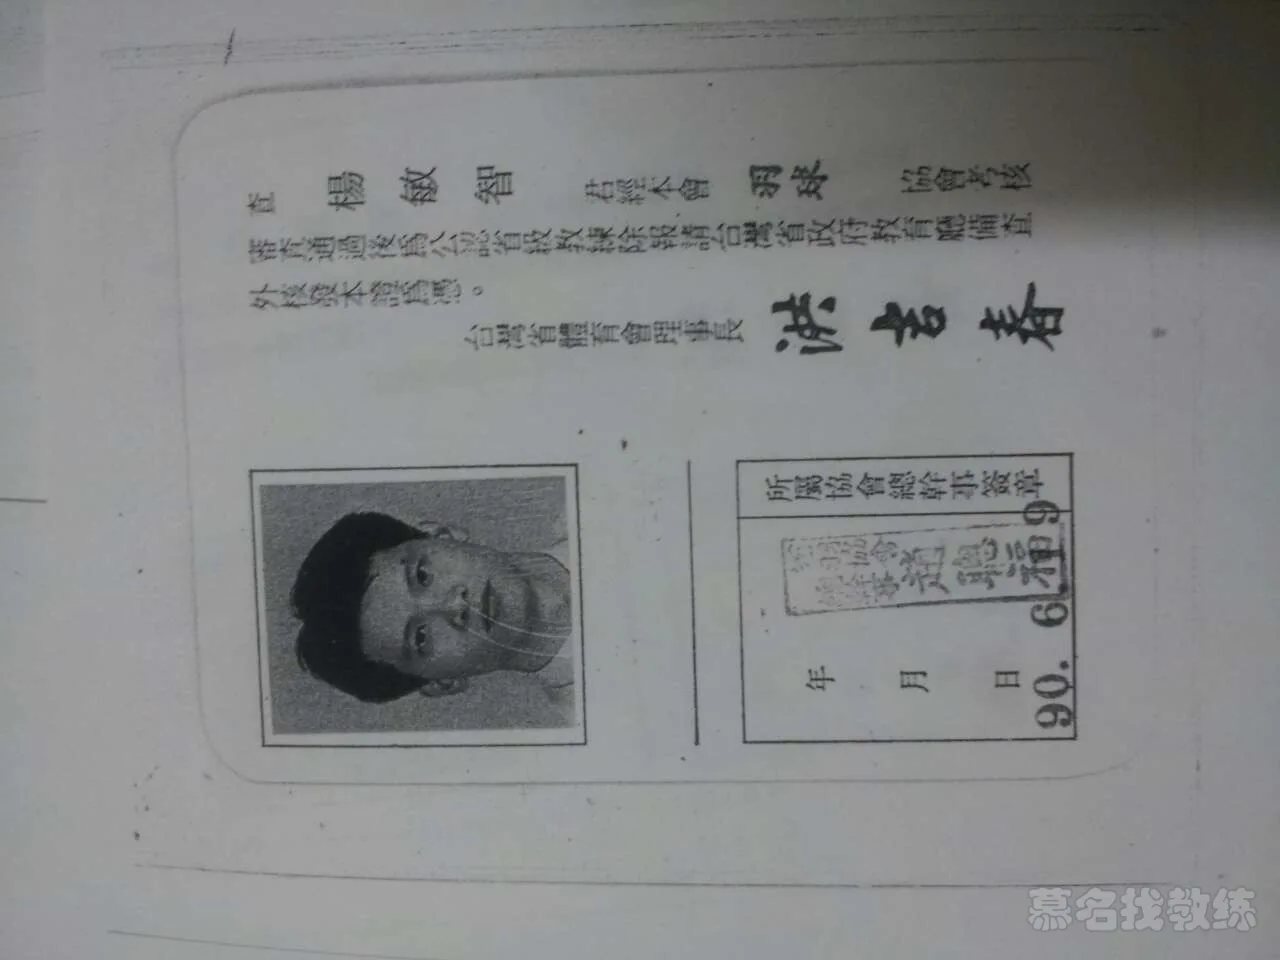 查 楊敏智 君經本會 羽球 協會考核
審查通過後爲公認省級教練除報請台灣省政府教育廳備查
外核發本證爲憑。
台灣省體育會理事長 洪吉春
所屬協會總幹事簽章
年 月 日
90. 6. 9
慕名找教练